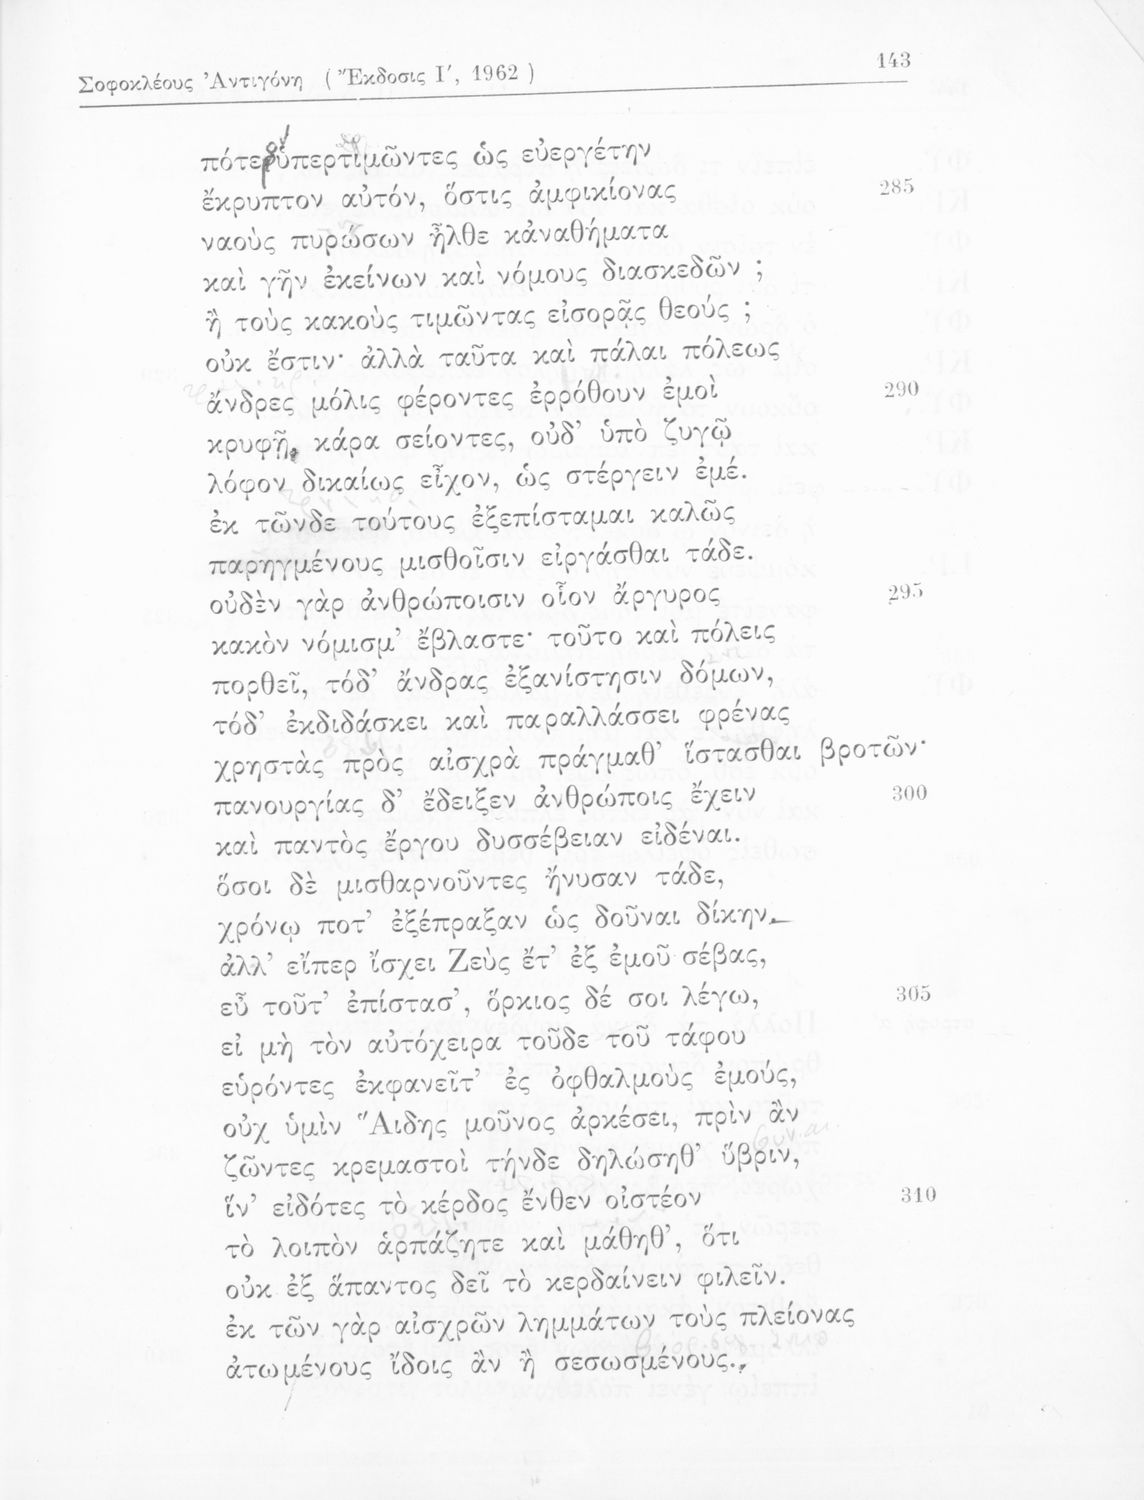 Σοφοκλέους Ἀντιγόνη ( Ἔκδοσις Ι΄, 1962 )
143
πότερ' ὑπερτιμῶντες ὡς εὐεργέτην
ἔκρυπτον αὐτόν, ὅστις ἀμφικίονας 285
ναοὺς πυρώσων ἦλθε κἀναθήματα
καὶ γῆν ἐκείνων καὶ νόμους διασκεδῶν ;
ἢ τοὺς κακοὺς τιμῶντας εἰσορᾷς θεούς ;
οὐκ ἔστιν· ἀλλὰ ταῦτα καὶ πάλαι πόλεως
ἄνδρες μόλις φέροντες ἐρρόθουν ἐμοὶ 290
κρυφῇ, κάρα σείοντες, οὐδ' ὑπὸ ζυγῷ
λόφον δικαίως εἶχον, ὡς στέργειν ἐμέ.
ἐκ τῶνδε τούτους ἐξεπίσταμαι καλῶς
παρηγμένους μισθοῖσιν εἰργάσθαι τάδε.
οὐδὲν γὰρ ἀνθρώποισιν οἷον ἄργυρος 295
κακὸν νόμισμ' ἔβλαστε· τοῦτο καὶ πόλεις
πορθεῖ, τόδ' ἄνδρας ἐξανίστησιν δόμων,
τόδ' ἐκδιδάσκει καὶ παραλλάσσει φρένας
χρηστὰς πρὸς αἰσχρὰ πράγμαθ' ἵστασθαι βροτῶν·
πανουργίας δ' ἔδειξεν ἀνθρώποις ἔχειν 300
καὶ παντὸς ἔργου δυσσέβειαν εἰδέναι.
ὅσοι δὲ μισθαρνοῦντες ἤνυσαν τάδε,
χρόνῳ ποτ' ἐξέπραξαν ὡς δοῦναι δίκην.
ἀλλ' εἴπερ ἴσχει Ζεὺς ἔτ' ἐξ ἐμοῦ σέβας,
εὖ τοῦτ' ἐπίστασ', ὅρκιος δέ σοι λέγω, 305
εἰ μὴ τὸν αὐτόχειρα τοῦδε τοῦ τάφου
εὑρόντες ἐκφανεῖτ' ἐς ὀφθαλμοὺς ἐμούς,
οὐχ ὑμὶν Ἅιδης μοῦνος ἀρκέσει, πρὶν ἂν
ζῶντες κρεμαστοὶ τήνδε δηλώσηθ' ὕβριν,
ἵν' εἰδότες τὸ κέρδος ἔνθεν οἰστέον 310
τὸ λοιπὸν ἁρπάζητε καὶ μάθηθ', ὅτι
οὐκ ἐξ ἅπαντος δεῖ τὸ κερδαίνειν φιλεῖν.
ἐκ τῶν γὰρ αἰσχρῶν λημμάτων τοὺς πλείονας
ἀτωμένους ἴδοις ἂν ἢ σεσωσμένους.